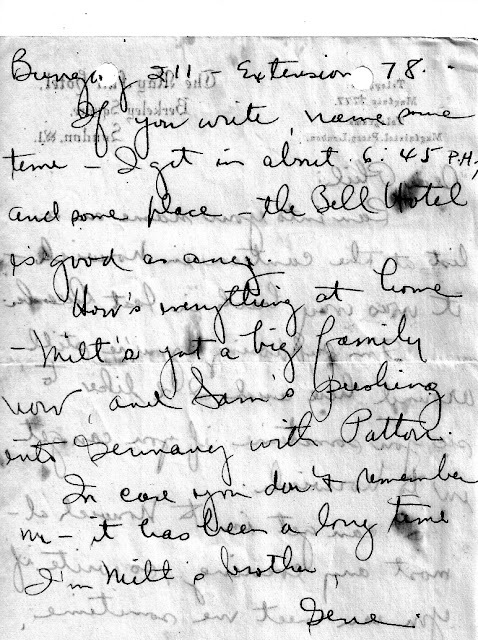 Bungay 211 - Extension 78.
If you write, name some
time - I get in about 6:45 P.M,
and some place - the Bell Hotel
is good as any.
How's everything at home
- Milt's got a big family
now and Sam's pushing
into Germany with Patton.
In case you don't remember
me - it has been a long time
I'm Milt's brother,
Gene.